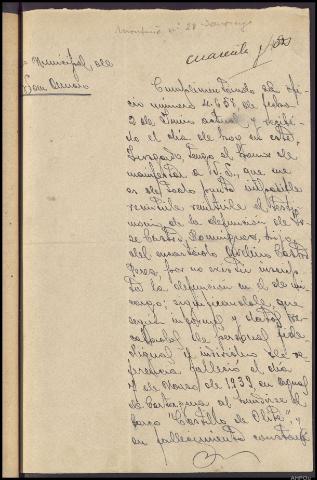 cuarenta y dos
Municipal de
San Amaro
Cumplimentando el ofi-
cio número 4.658 de fecha
2 de Junio actual y recibi-
do el día de hoy en este
Juzgado, tengo el honor de
manifestar a V.S., que me
es de todo punto imposible
remitirle el testi-
monio de la defunción de
Castro Dominguez, hijo
del encartado Castro
Perez, por no existir inscrip-
ta la defunción en el de mi
cargo; significandole, que
según informes y datos re-
de personal fide-
digno, el de re-
ferencia falleció el día
7 de Marzo de 1939, en aguas
de Cartagena al hundirse el
barco "Castillo de Olite" y
su fallecimiento
AHPOu